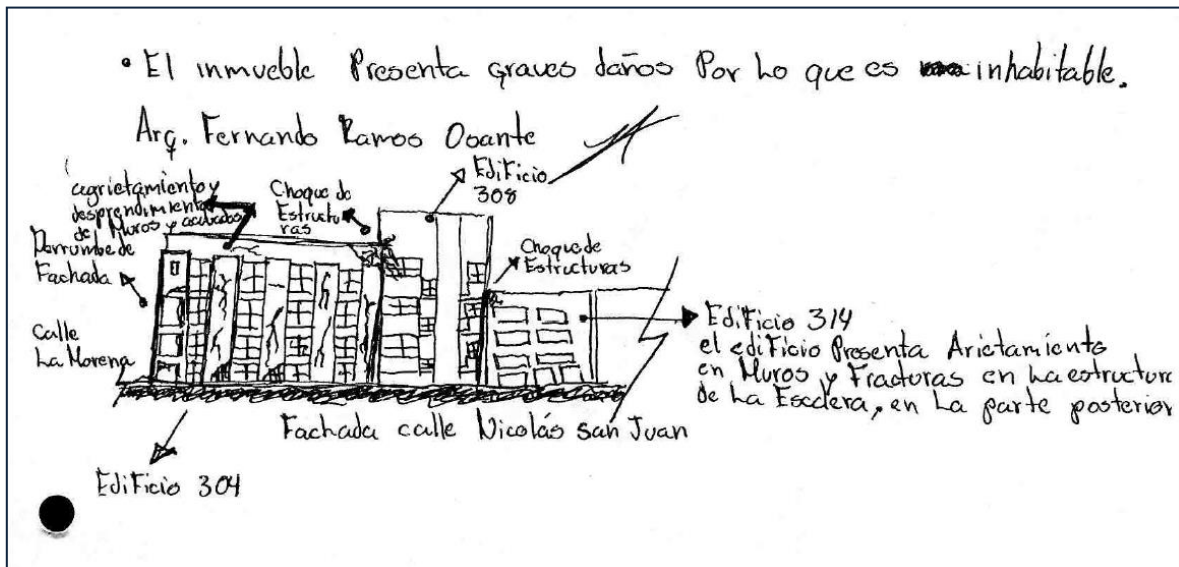 • El inmueble Presenta graves daños Por Lo que es inhabitable.
Arq. Fernando Ramos Osante
agrietamiento y
desprendimiento
de Muros y acabados
Choque de
Estructu
ras
Edificio
308
Derrumbe de
Fachada
Choque de
Estructuras
Calle
La Morena
Edificio 314
el edificio Presenta Arietamiento
en Muros y Fracturas en La estructura
de La Escalera, en La parte posterior
Fachada calle Nicolás san Juan
Edificio 304